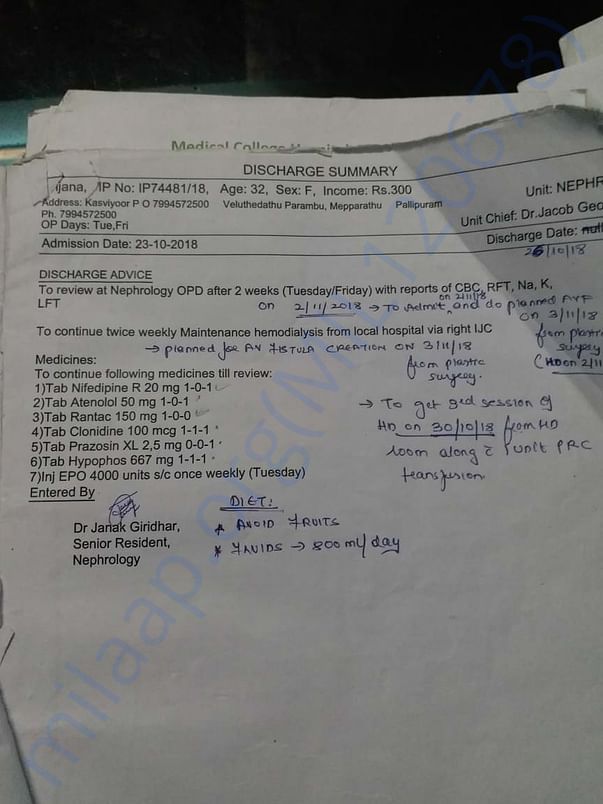 Medical College Hospi
DISCHARGE SUMMARY
jana, IP No: IP74481/18, Age: 32, Sex: F, Income: Rs.300
Unit: NEPHR
Address: Kasviyoor P O 7994572500 Veluthedathu Parambu, Mepparathu Pallipuram
Ph. 7994572500
Unit Chief: Dr.Jacob Geo
OP Days: Tue,Fri
Discharge Date: null
Admission Date: 23-10-2018
26/10/18
DISCHARGE ADVICE
To review at Nephrology OPD after 2 weeks (Tuesday/Friday) with reports of CBC, RFT, Na, K,
LFT
on 2/11/2018 → To Admit on 2/11/18 and do planned AVF
on 3/11/18
from plastic
surgery
(HD on 2/11
To continue twice weekly Maintenance hemodialysis from local hospital via right IJC
→ planned for AV FISTULA CREATION ON 3/11/18
from plastic
surgery.
Medicines:
To continue following medicines till review:
1)Tab Nifedipine R 20 mg 1-0-1
2)Tab Atenolol 50 mg 1-0-1
3)Tab Rantac 150 mg 1-0-0
4)Tab Clonidine 100 mcg 1-1-1
5)Tab Prazosin XL 2,5 mg 0-0-1
6)Tab Hypophos 667 mg 1-1-1
7)Inj EPO 4000 units s/c once weekly (Tuesday)
→ To get 3rd session of
HD on 30/10/18 from HD
room along c̄ 1 unit PRC
transfusion
Entered By
Dr Janak Giridhar,
Senior Resident,
Nephrology
DIET:
* AVOID FRUITS
* FLUIDS → 800 ml/day
milaap.org(MLP120678)